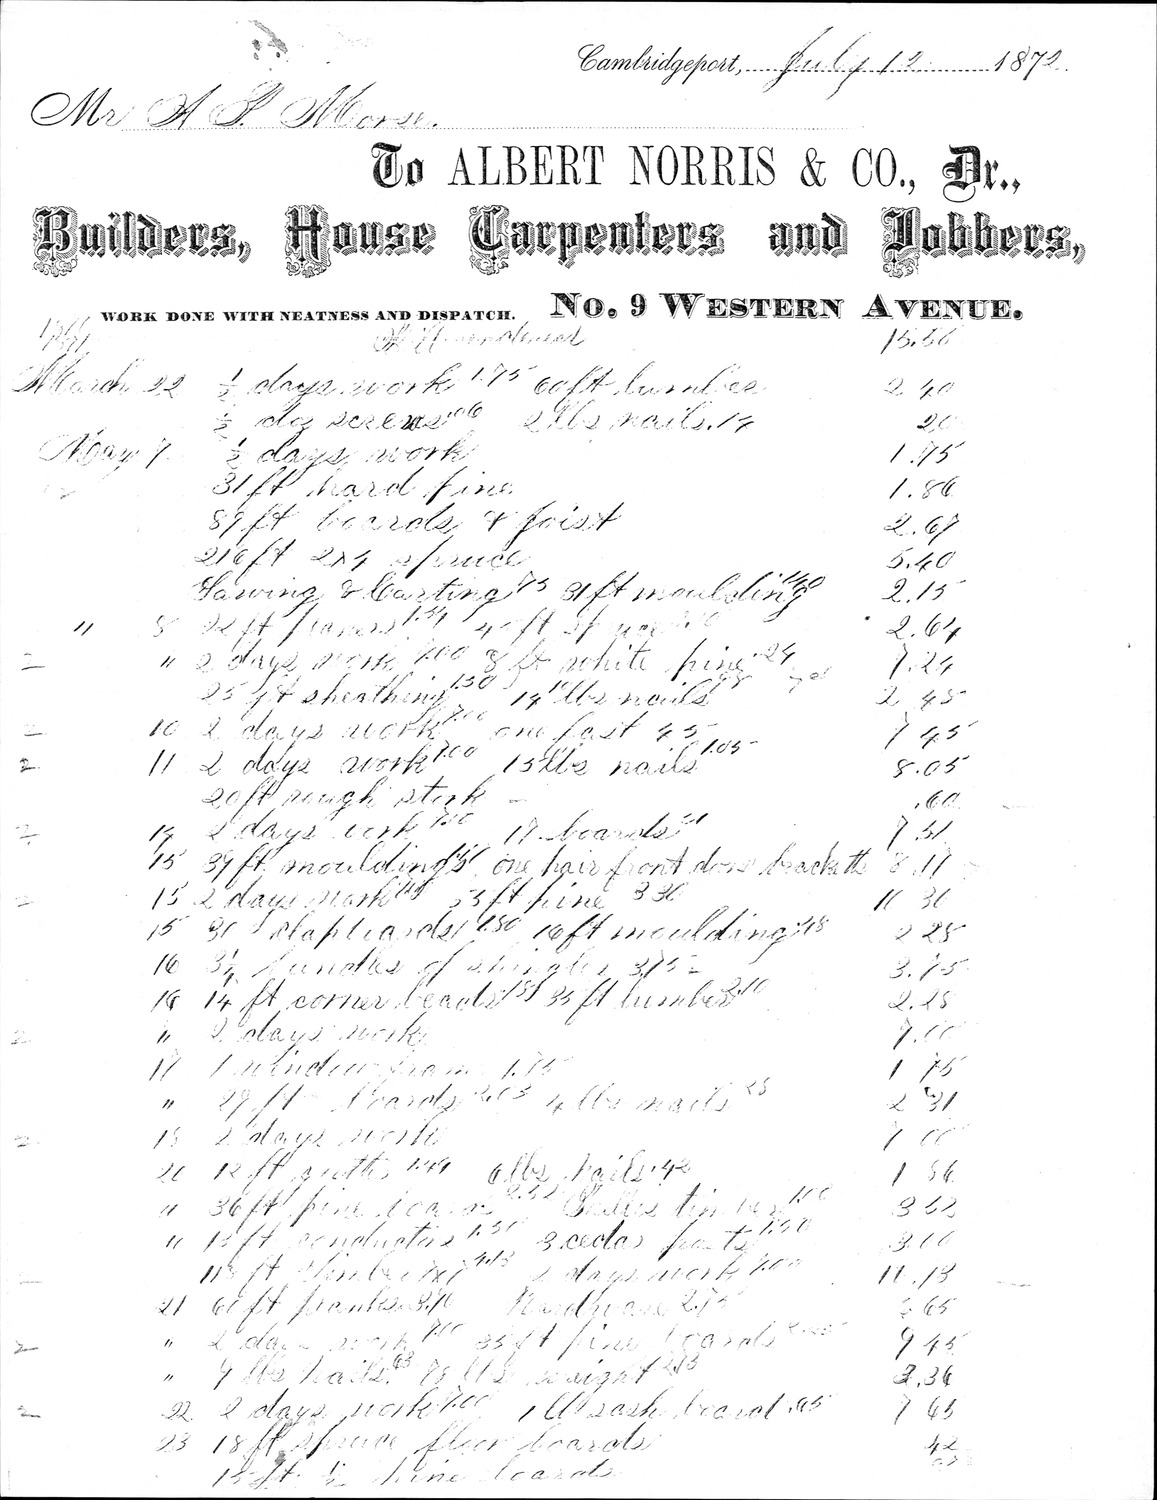 Cambridgeport, July 12 1872.
Mr A P Morse.
To ALBERT NORRIS & CO., Dr.,
Builders, House Carpenters and Jobbers,
WORK DONE WITH NEATNESS AND DISPATCH. No. 9 WESTERN AVENUE.
15.50
March 22 ½ days work 1.75 60 ft lumber 2 40
½ dz screws .06 2 lbs nails .14 20
May 7 ½ days work 1.75
31 ft hard pine 1.86
89 ft boards & joist 2.67
216 ft 2x4 spruce 5.40
Sawing & Carting .75 31 ft moulding 1.40 2.15
" 8 22 ft 40 ft spruce 2.64
2 " 2 days work 7.00 8 ft white pine .24 7.24
25 ft sheathing 1.50 14 lbs nails 2 48
2 10 2 days work 7.00 one fast 45 7 45
2 11 2 days work 7.00 15 lbs nails 1.05 8.05
20 ft rough stock .60
2 14 2 days work 7.00 17 boards .51 7 51
15 39 ft mouldings one pair front door bracketts 8.11
2 15 2 days work ft pine 3 30
15 30 clapboards 1.80 16 ft moulding .48 2 28
16 3¼ bundles of shingles 3.75 3.75
16 14 ft corner beads .18 35 ft lumber 2.10 2.28
2 " 2 days work 7.00
17 1 window frame 1.75 1 75
" 29 ft boards 2.03 4 lbs nails 28 2 31
2 18 2 days work 7 00
20 12 ft 1.44 6 lbs nails .42 1 86
" 36 ft pine boards 2.52 timber 1.00 3 52
" 15 ft conductors 1.50 3 cedar posts 1.50 3.00
ft timber 4.13 2 days work 7.00 11.13
21 ft planks Hardware 2.75 65
2 " 2 days work 7.00 35 ft pine boards 2.45 9 45
" 9 lbs nails .63 lbs weight
2 22 2 days work 7.00 1 sash board .65 7 65
23 18 ft spruce floor boards 42
15 ft ½ pine boards